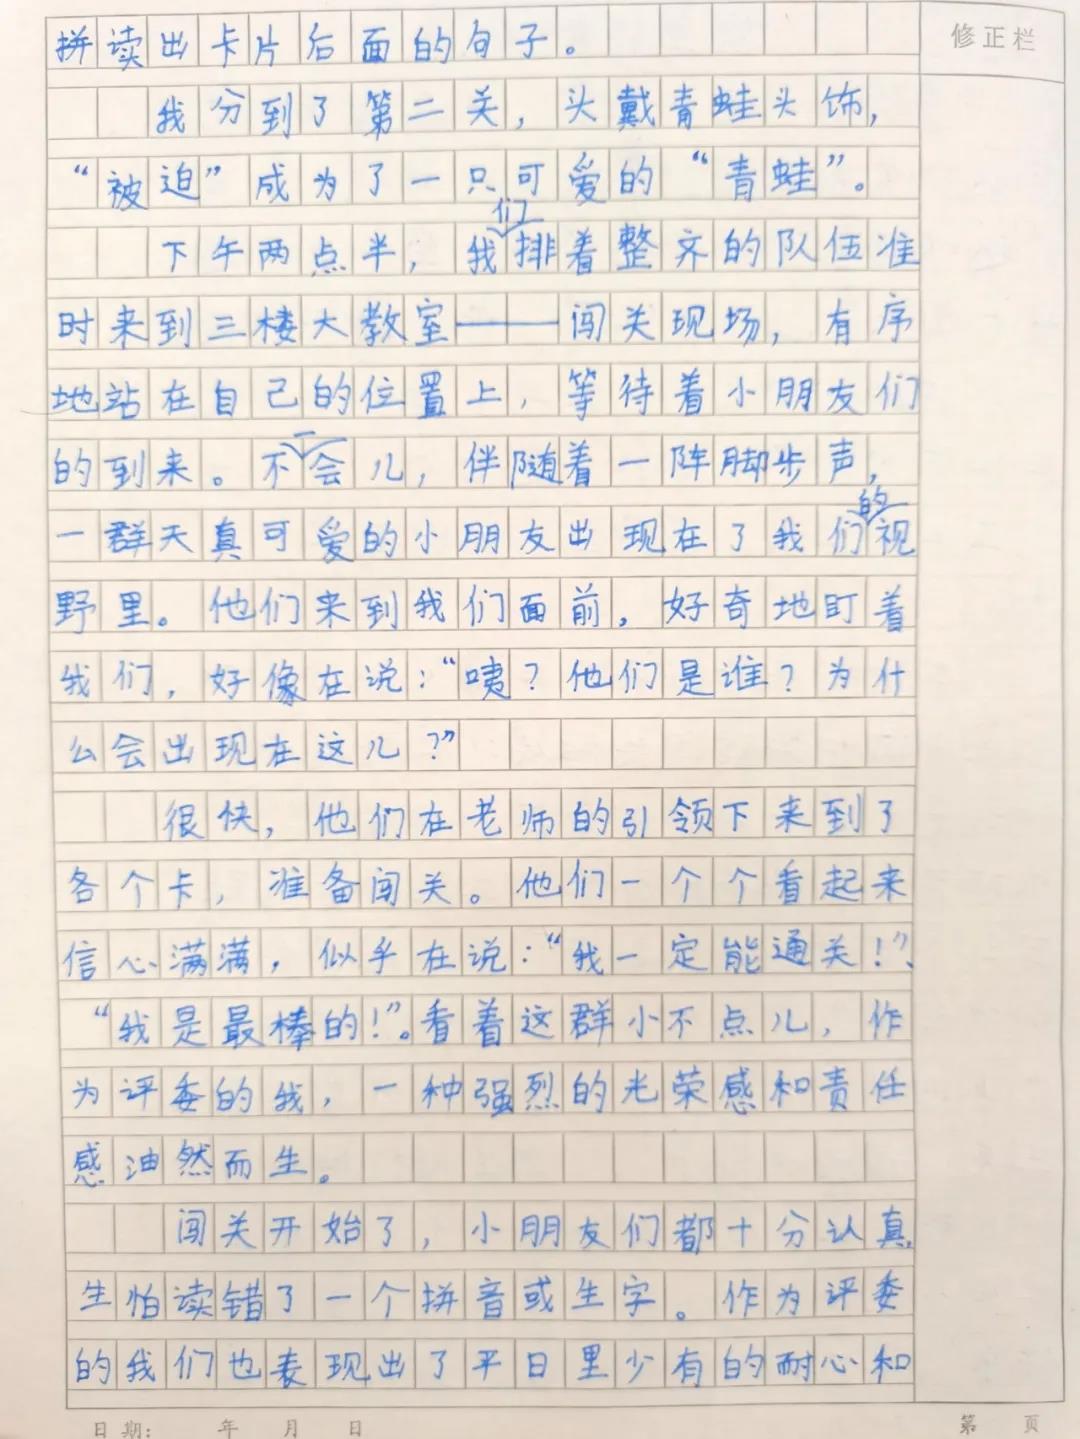 拼读出卡片后面的句子。
修正栏
我分到了第二关，头戴青蛙头饰，
“被迫”成为了一只可爱的“青蛙”。
下午两点半，我们排着整齐的队伍准
时来到三楼大教室——闯关现场，有序
地站在自己的位置上，等待着小朋友们
的到来。不一会儿，伴随着一阵脚步声，
一群天真可爱的小朋友出现在了我们的视
野里。他们来到我们面前，好奇地盯着
我们，好像在说：“咦？他们是谁？为什
么会出现在这儿？”
很快，他们在老师的引领下来到了
各个卡，准备闯关。他们一个个看起来
信心满满，似乎在说：“我一定能通关！”、
“我是最棒的！”。看着这群小不点儿，作
为评委的我，一种强烈的光荣感和责任
感油然而生。
闯关开始了，小朋友们都十分认真，
生怕读错了一个拼音或生字。作为评委
的我们也表现出了平日里少有的耐心和
日期： 年 月 日
第 页